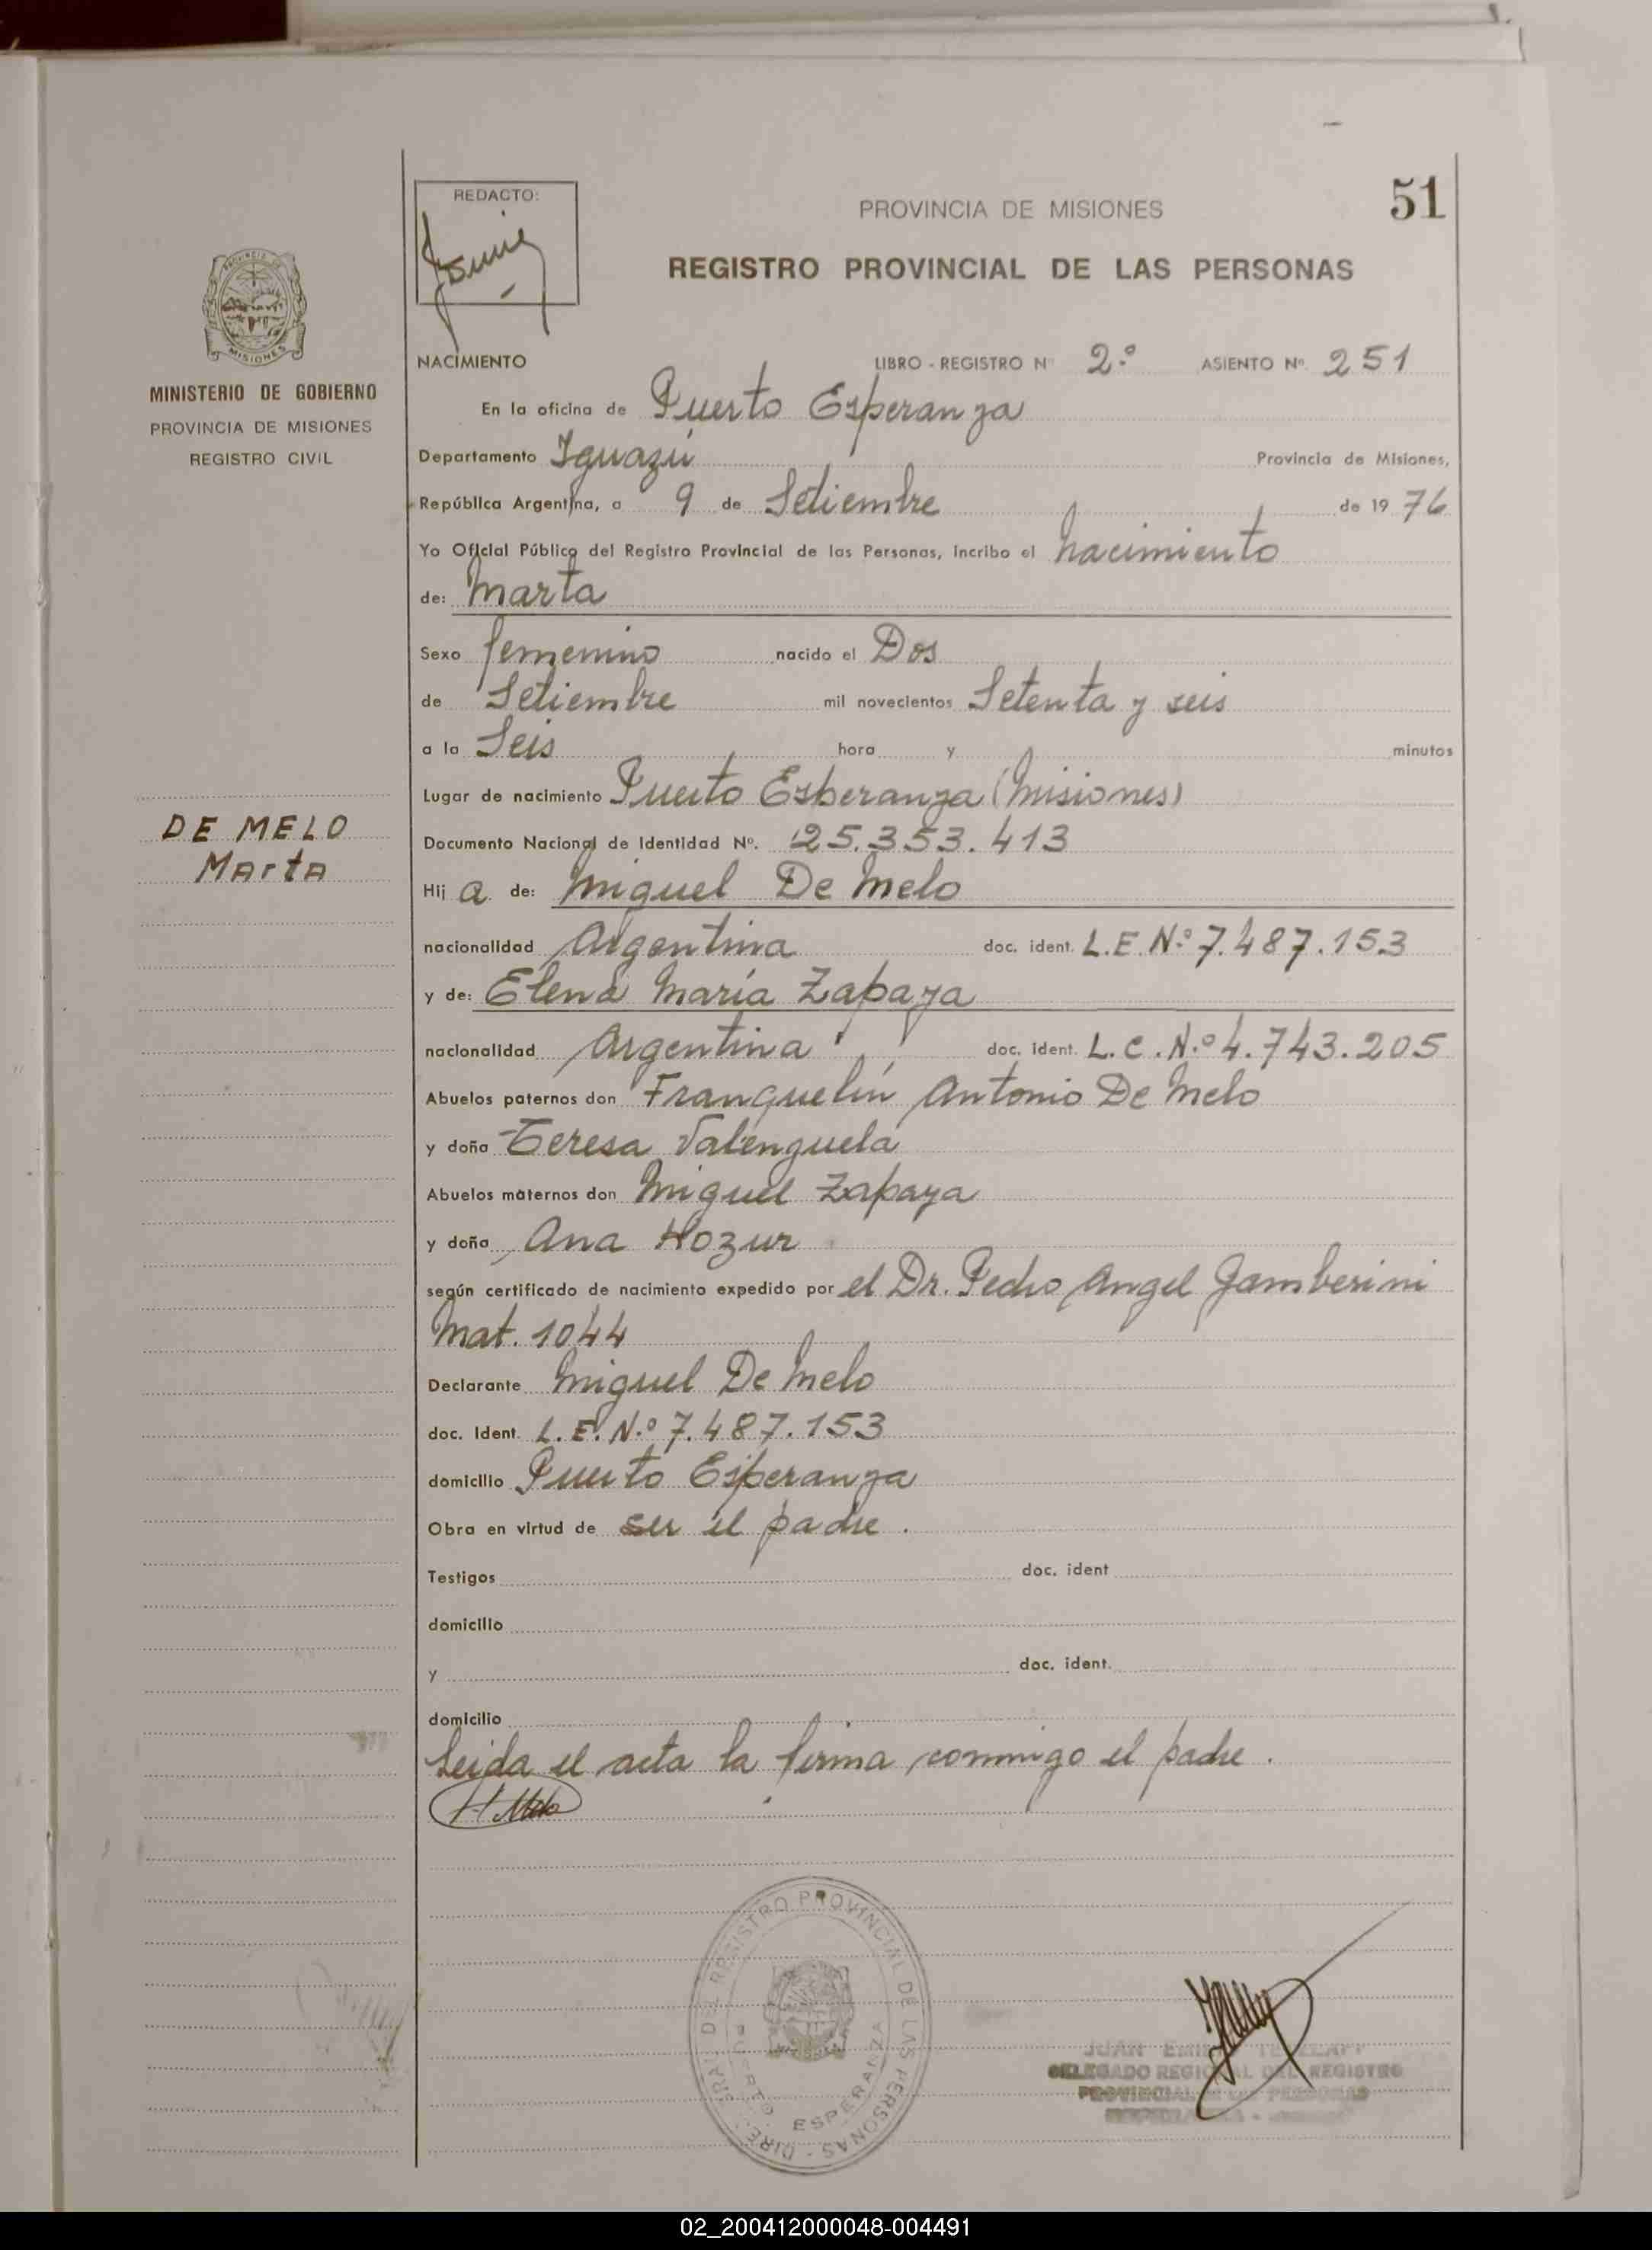 51
REDACTO:
PROVINCIA DE MISIONES
REGISTRO PROVINCIAL DE LAS PERSONAS
MISIONES
MINISTERIO DE GOBIERNO
PROVINCIA DE MISIONES
REGISTRO CIVIL
NACIMIENTO LIBRO - REGISTRO Nº 2.º ASIENTO Nº. 251
En la oficina de Puerto Esperanza
Departamento Iguazú Provincia de Misiones,
República Argentina, a 9 de Setiembre de 19 76
Yo Oficial Público del Registro Provincial de las Personas, incribo el nacimiento
de: Marta
Sexo femenino nacido el Dos
de Setiembre mil novecientos Setenta y seis
a la Seis hora y minutos
Lugar de nacimiento Puerto Esperanza (Misiones)
DE MELO
Marta
Documento Nacional de Identidad Nº. 25.353.413
Hij a de: Miguel De Melo
nacionalidad Argentina doc. ident. L.E.N.º 7.487.153
y de: Elena María Zapaya
nacionalidad Argentina doc. ident. L.C.N.º 4.743.205
Abuelos paternos don Franquelín Antonio De Melo
y doña Teresa Valenzuela
Abuelos maternos don Miguel Zapaya
y doña Ana Hozur
según certificado de nacimiento expedido por el Dr. Pedro Angel Gamberini
Mat. 1044
Declarante Miguel De Melo
doc. Ident. L.E.N.º 7.487.153
domicilio Puerto Esperanza
Obra en virtud de ser el padre.
Testigos doc. ident
domicilio
y doc. ident.
domicilio
Leida el acta la firma conmigo el padre.
DEL REGISTRO PROVINCIAL DE LAS PERSONAS - DIRE. GRAL.
PUERTO ESPERANZA
JUAN
DELEGADO REGIONAL DEL REGISTRO
PROVINCIAL DE LAS PERSONAS
02_200412000048-004491